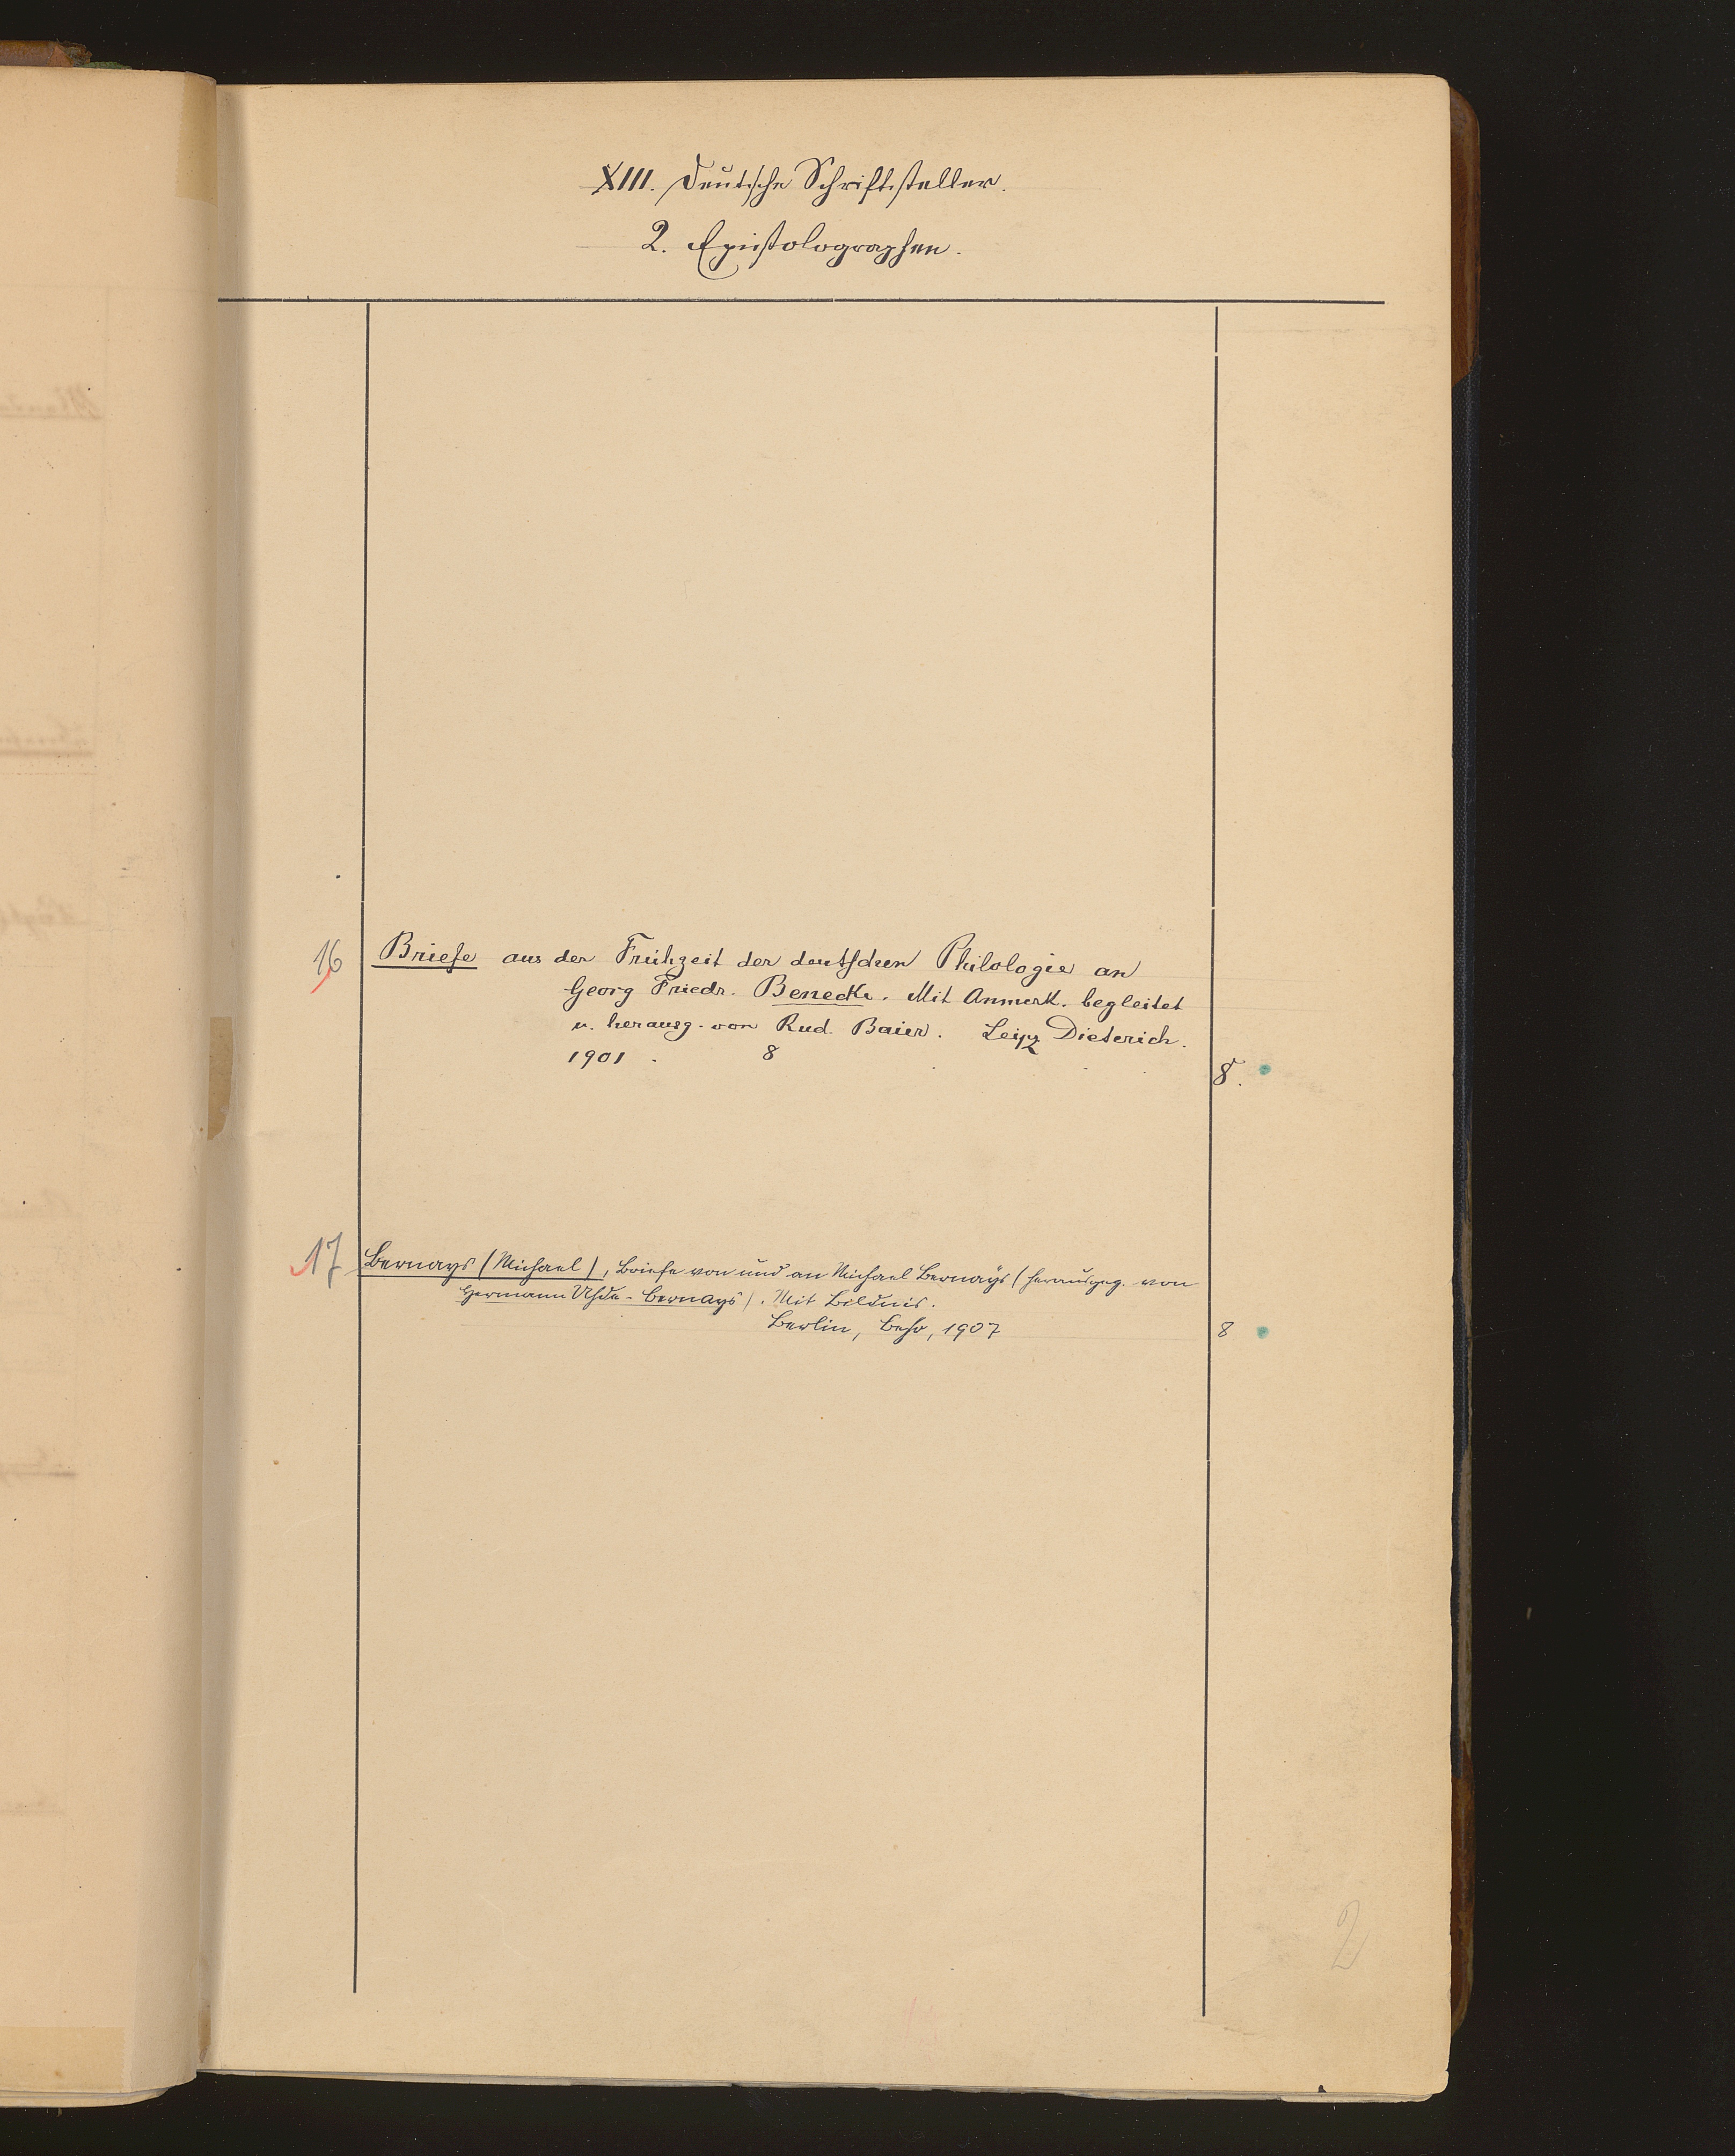 XIII. Deutsche Schriftsteller.
2. Epistolographen.
16 Briefe aus der Frühzeit der deutschen Philologie an
Georg Friedr. Benecke. Mit Anmerk. begleitet
u. herausg. von Rud. Baier. Leipz Dieterich.
1901. 8
8.
17 Bernays (Michael), Briefe von und an Michael Bernays (herausgeg. von
Hermann Uhde-Bernays). Mit Bildnis.
Berlin, Behr, 1907 8
2